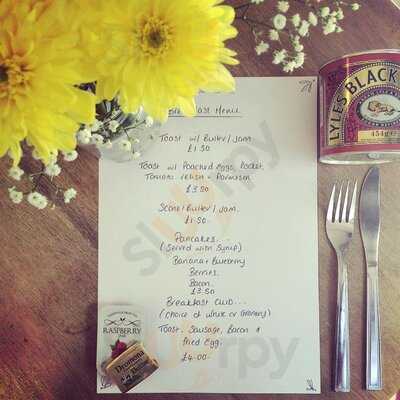 Breakfast Menu
Toast w/ Butter/Jam
£1.50
Toast w/ Poached Eggs, Rocket,
Tomato relish + Parmesan
£3.50
Scone/Butter/Jam.
£1.50
Pancakes...
(Served with Syrup)
Banana + Blueberry
Berries.
Bacon.
£3.50
Breakfast Club...
(Choice of White or Granary)
Toast. Sausage, Bacon &
Fried Egg.
£4.00
LYLE'S BLACK
454g e
RASPBERRY
Dromona
Butter
Sluurpy
sluurpy